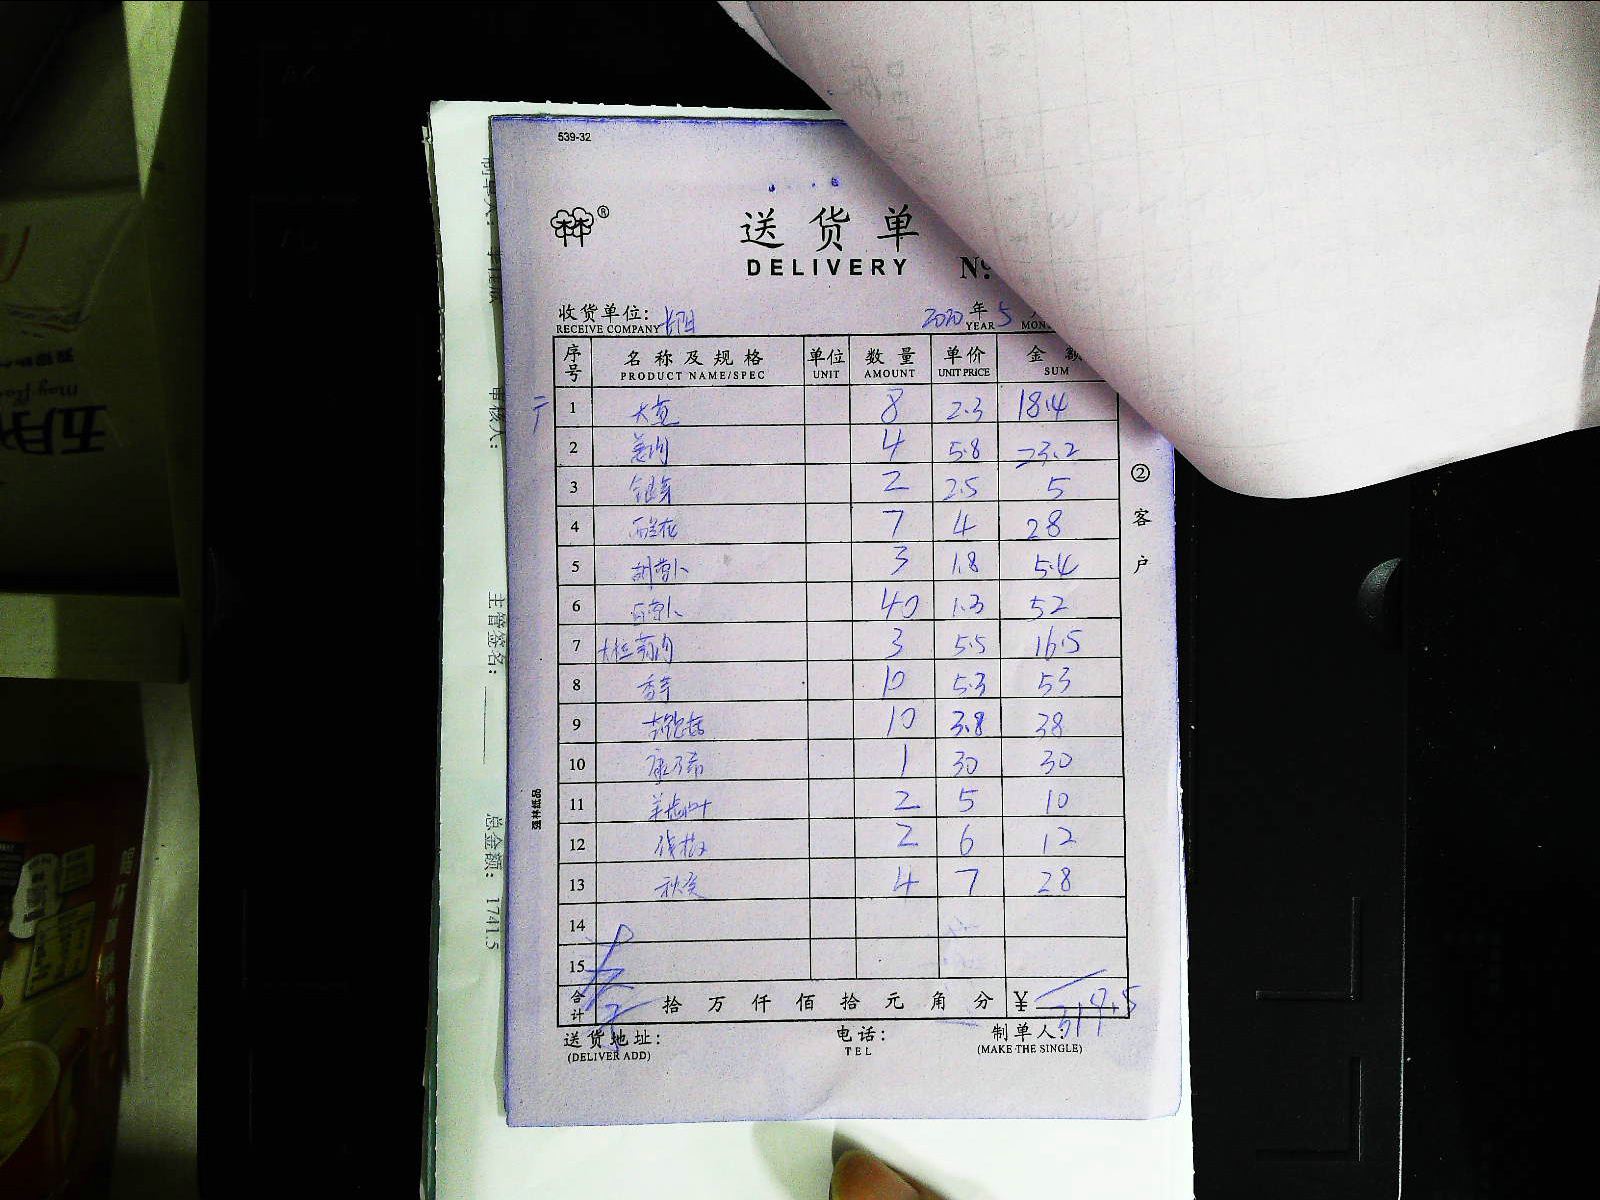 539-32
林®
送货单
DELIVERY No
收货单位: 长阳 2020年5
RECEIVE COMPANY YEAR MON
序号 名称及规格 单位 数量 单价 金额
PRODUCT NAME/SPEC UNIT AMOUNT UNIT PRICE SUM
1 大葱 8 2.3 18.4
2 姜肉 4 5.8 23.2
3 银芽 2 2.5 5
4 西兰花 7 4 28
5 胡萝卜 3 1.8 5.4
6 白萝卜 40 1.3 52
7 3 5.5 16.5
8 香芋 10 5.3 53
9 10 3.8 38
10 康乃馨 1 30 30
11 2 5 10
12 2 6 12
13 秋葵 4 7 28
14
15
合计 拾万仟佰拾元角分 ¥ 319.5
送货地址: 电话: 制单人:
(DELIVER ADD) TEL (MAKE THE SINGLE)
②客户
强林纸品
审核人:
主管签名:
总金额: 1741.5
五月
may flo